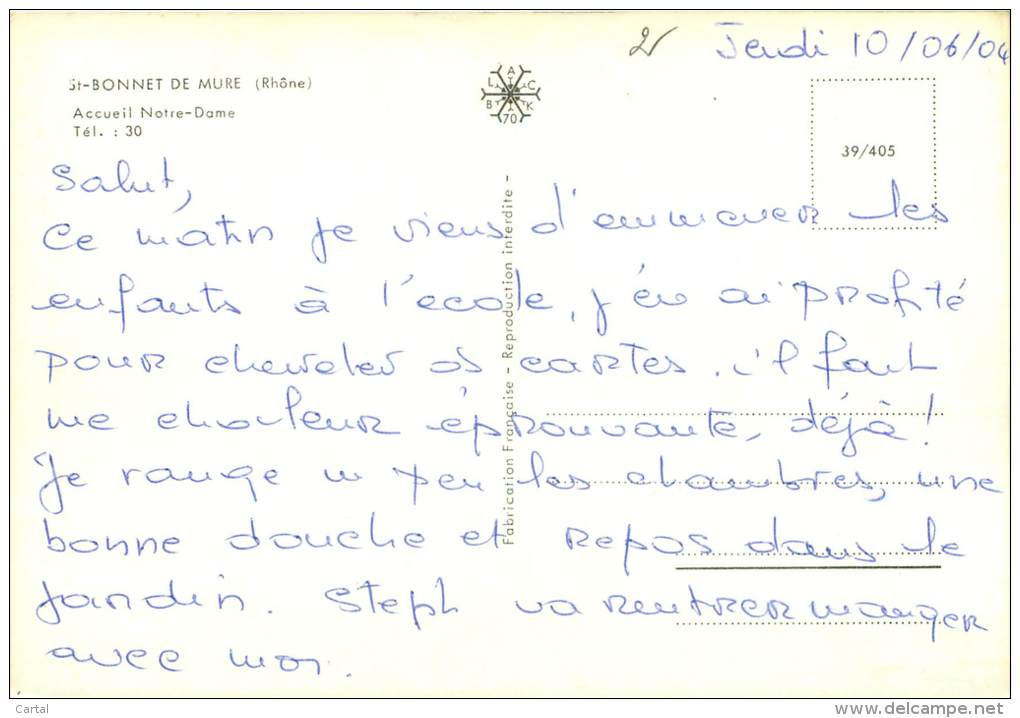 2
Jeudi 10/06/04
St-BONNET DE MURE (Rhône)
Accueil Notre-Dame
Tél. : 30
L A C
B K
70
39/405
Fabrication Française - Reproduction interdite -
Salut,
Ce matin je viens d'emmener les
enfants à l'ecole, j'en ai profité
pour cheveler os cartes. il fait
une chaleur éprouvante, déjà !
Je range un peu les chambres, une
bonne douche et repos dans le
jardin. Steph va rentrer manger
avec moi.
Cartal
www.delcampe.net